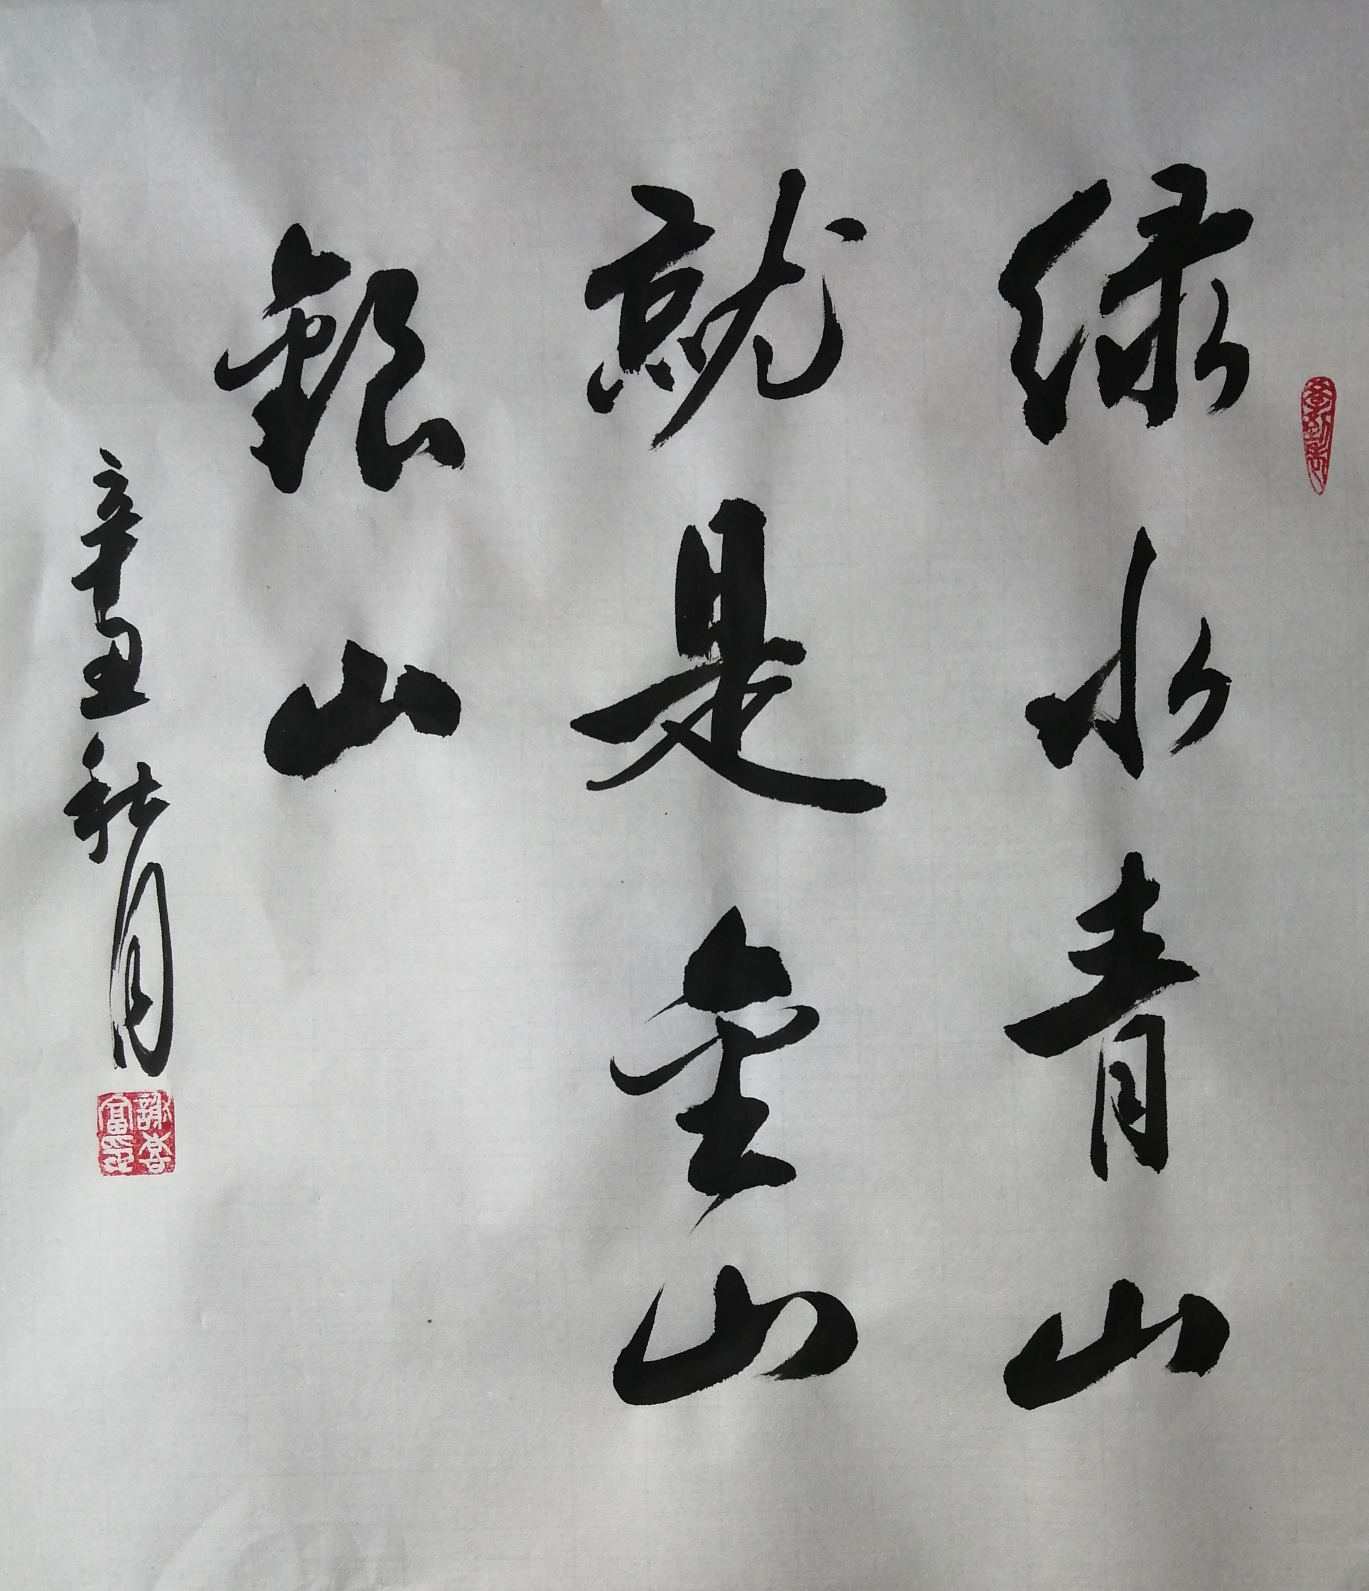 绿水青山
就是金山
銀山
辛丑秋月